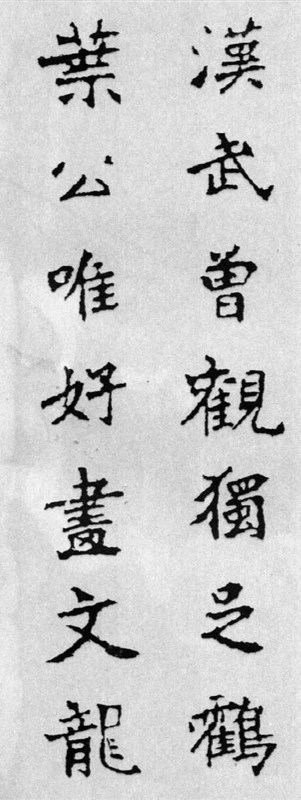 漢武曾觀獨足鶴
葉公唯好畫文龍